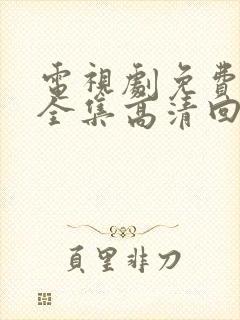 電視劇免費
全集高清回
頁里非刀